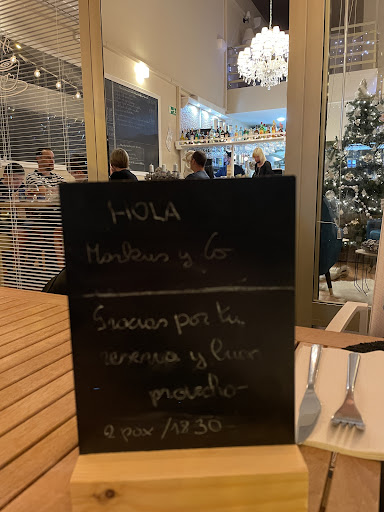 HOLA
Markus y Co
Gracias por tu
reserva y buen
provecho-
2 pax / 18.30-